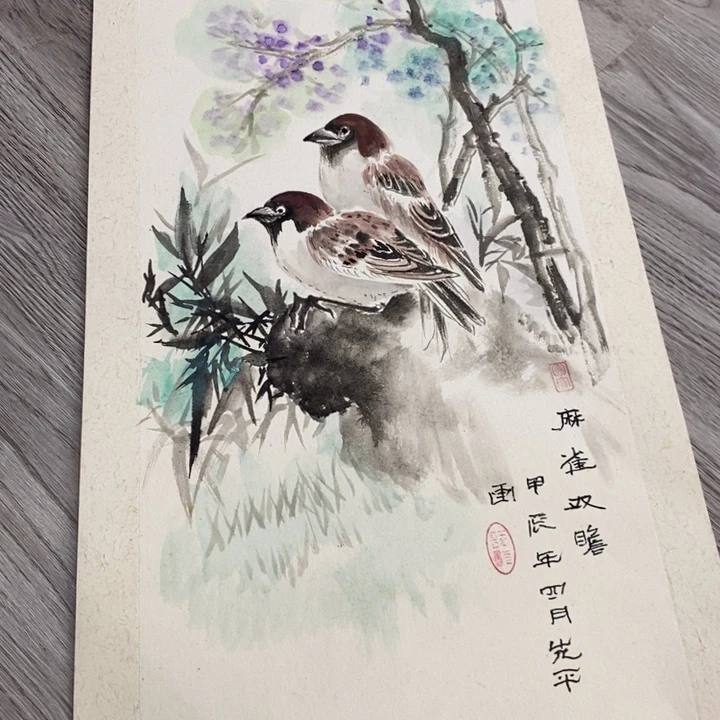 麻雀双瞻
甲辰年四月光平
画